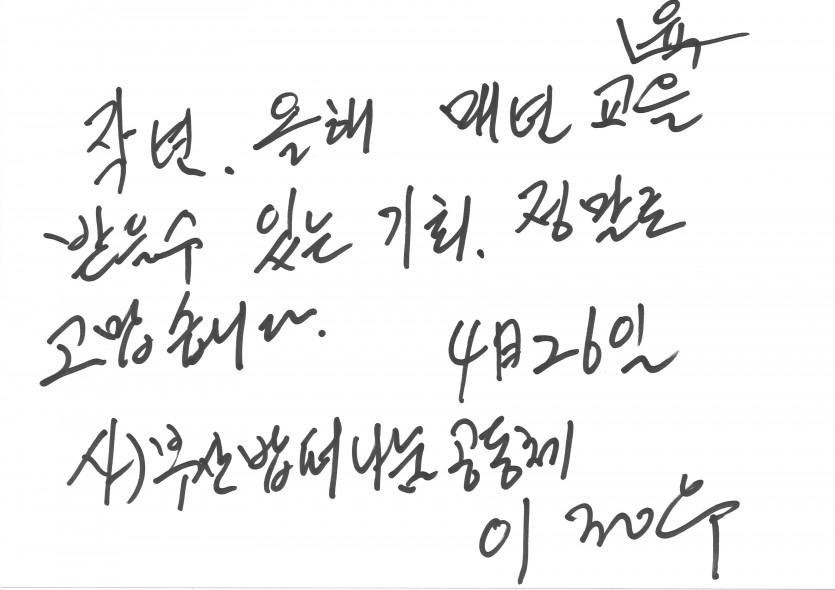 작년. 올해 매년 교육을
받을수 있는 기회. 정말로
고맙습니다. 4月26일
사)부산밥퍼나눔공동체
이